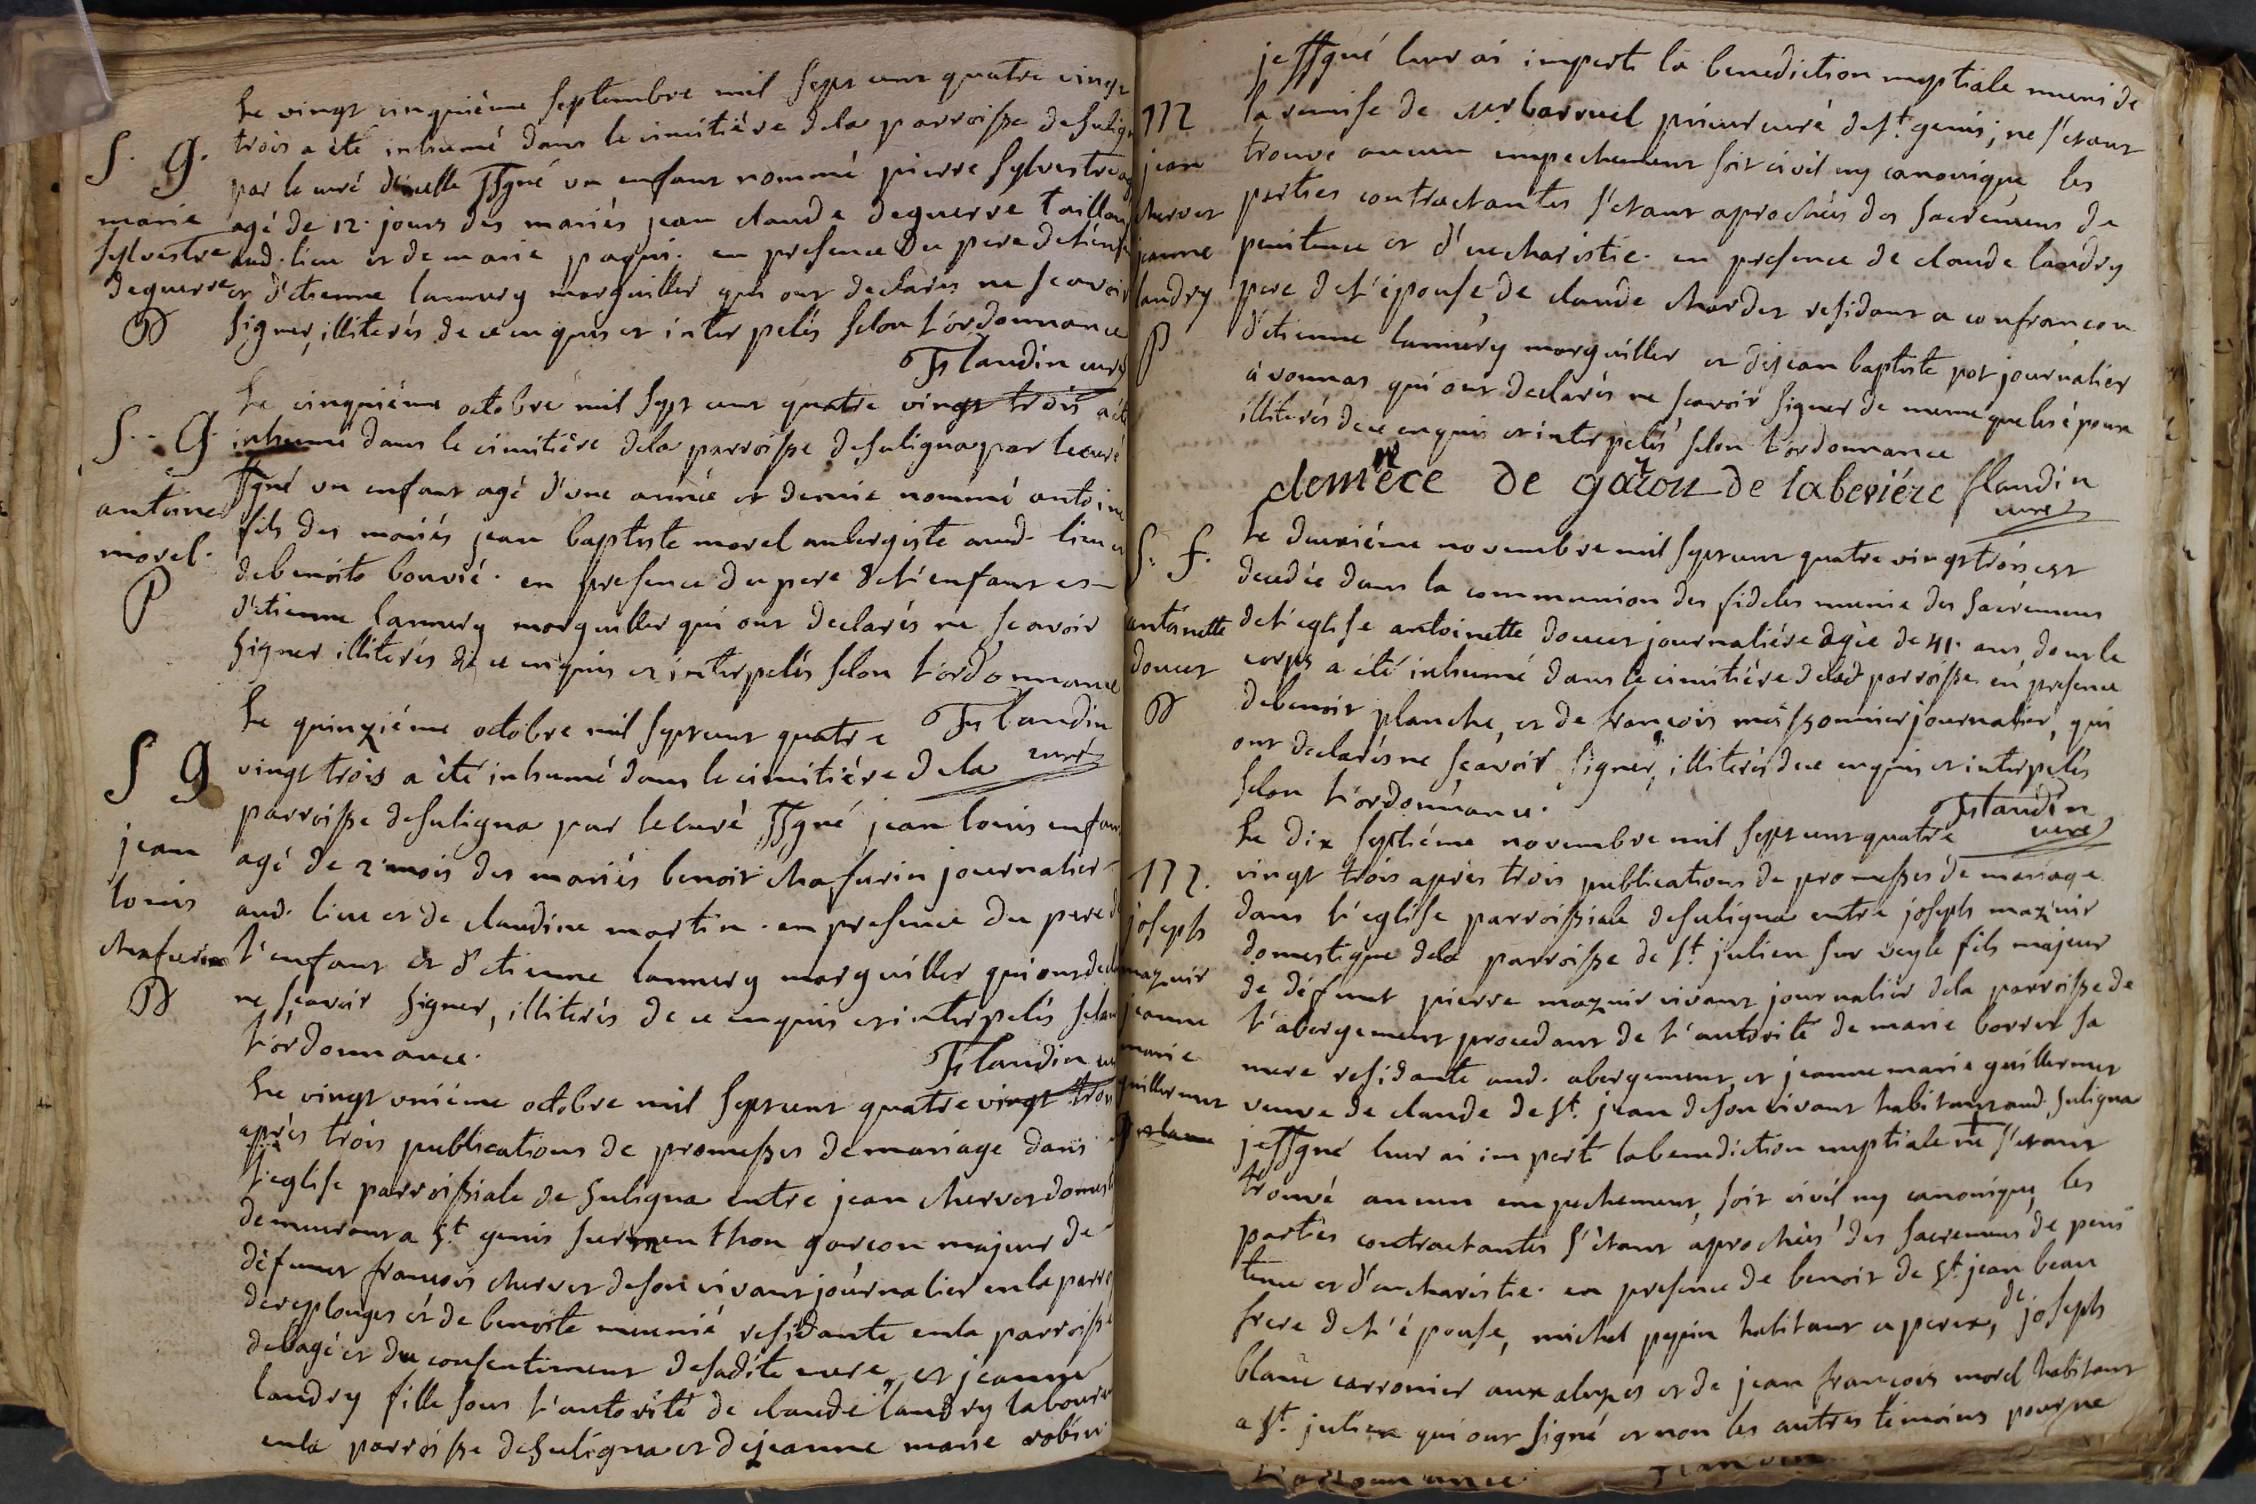 Le vingt cinquiéme septembre mil sept cent quatre vingt
S. G. trois a été inhumé dans le cimitiére dela parroisse desuligna
par le curé dicelle ssgné un enfant nommé pierre sylvestre
marie agé de 12. jours des mariés jean claude deguerre taillon
sylvestre aud. lieu et de marie paqui. en presence du pere de l'enfant
deguerre et d'étienne lannery marguiller qui ont declarés ne scavoir
P signer, illiterés de ce enquis et interpelés selon l'ordonnance
Flandin curé
Le cinquiéme octobre mil sept cent quatre vingt trois a été
S. G. inhumé dans le cimitiére dela parroisse desuligna par le curé
ssgné un enfant agé d'une année et demie nommé antoine
antoine fils des mariés jean baptiste morel aubergiste aud. lieu et
morel. debenoite bouvié. en presence du pere de l'enfant et
P d'étienne lannery marguiller qui ont declarés ne scavoir
signer illiterés de ce enquis et interpelés selon l'ordonnance
Le quinziéme octobre mil sept cent quatre Flandin
S G vingt trois a été inhumé dans le cimitiére dela curé
parroisse desuligna par le curé ssgné jean louis enfant
jean agé de 2 mois des mariés benoit chafurin journalier
louis aud. lieu et de claudine martin. en presence du pere de
chafurin l'enfant et d'etienne lannery marguiller qui ont declarés
P ne scavoir signer, illiterés de ce enquis et interpelés selon
l'ordonnance.
Flandin curé
Le vingt uniéme octobre mil sept cent quatre vingt trois
après trois publications de promesses de mariage dans
l'eglise parroissiale de suligna entre jean chervet domest
demeurant a St. genis sur menthon garcon majeur de
défunct françois chervet deson vivant journalier enla parroi
dereplonges et de benoite meunié residante enla parroisse
debagé et du consentiment de sadite mere, et jeanne
landry fille sous l'autorité de claude landry laboureur
enla parroisse desuligna et dejeanne marie robin
je ssgné leur ai imparti la benediction nuptiale muni de
M la remise de Mr barruel prieur curé de St. genis; ne s'étant
jean trouvé aucun empechement soit civil ny canonique, les
chervet parties contractantes s'étant aprochées des sacremens de
jeanne penitence et d'eucharistie. en presence de claude landry
landry pere de l'épouse, de claude chardet residant a confrancon
P d'étienne lannery marguiller et dejean baptiste pot journalier
à vonnas qui ont declarés ne scavoir signer de meme que les époux
illiterés de ce enquis et interpelés selon l'ordonnance
de garon de laberiére flandin
curé
Le deuxiéme novembre mil sept cent quatre vingt trois est
S. f. decedée dans la communion des fideles munie des sacremens
antoinette de l'eglise antoinette doucet journaliére agée de 41. ans, dont le
doucet corps a été inhumé dans le cimitiére delad. parroisse en presence
P debenoit planche, et de françois moissonnier journalier, qui
ont declarés ne scavoir signer, illiterés de ce enquis et interpelés
selon l'ordonnance.
Flandin
Le dix septiéme novembre mil sept cent quatre curé
M. vingt trois après trois publications de promesses de mariage
joseph dans l'eglise parroissiale desuligna entre joseph mazuir
mazuir domestique dela parroisse de St. julien sur veyle fils majeur
jeanne de défunct pierre mazuir vivant journalier dela parroisse de
marie l'abergement procedant de l'autorité de marie borret sa
guillermet mere residante aud. abergement, et jeanne marie guillermet
veuve de claude de St. jean deson vivant habitant aud. suligna
je ssgné leur ai imparti la benediction nuptiale ne s'étant
trouvé aucun empechement, soit civil ny canonique, les
parties contractantes s'étant aprochées des sacremens de peni
tence et d'eucharistie. en presence de benoit de St. jean beau
frere de l'épouse, michel pepin habitant a perex, de joseph
blanc carronier aux alupes et de jean françois morel habitant
a St. julien qui ont signé et non les autres témoins pour ne
l'ordonnance. Flandin